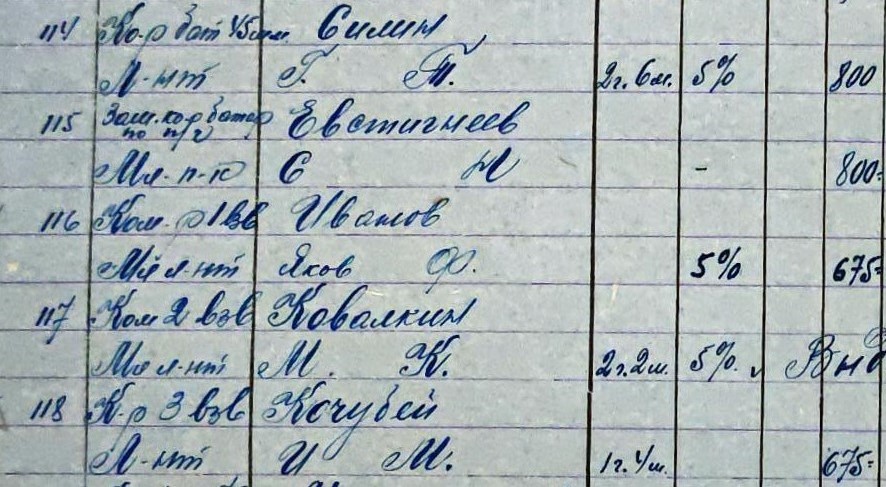 114 К-р бат 45мм. Силин
Л-нт Г. Т. 2г. 6м. 5% 800
115 Зам. кор батар Евстигнеев
по п/ч
Мл. п-к С И - 800=
116 Ком. р 1 вв Иванов
Мл л-нт Яков Ф. 5% 675=
117 Ком 2 взв Ковалкин
Мл л-нт М. К. 2г. 2м. 5%.
118 К-р 3 взв Кочубей
Л-нт И М. 1г. 4м. 675=